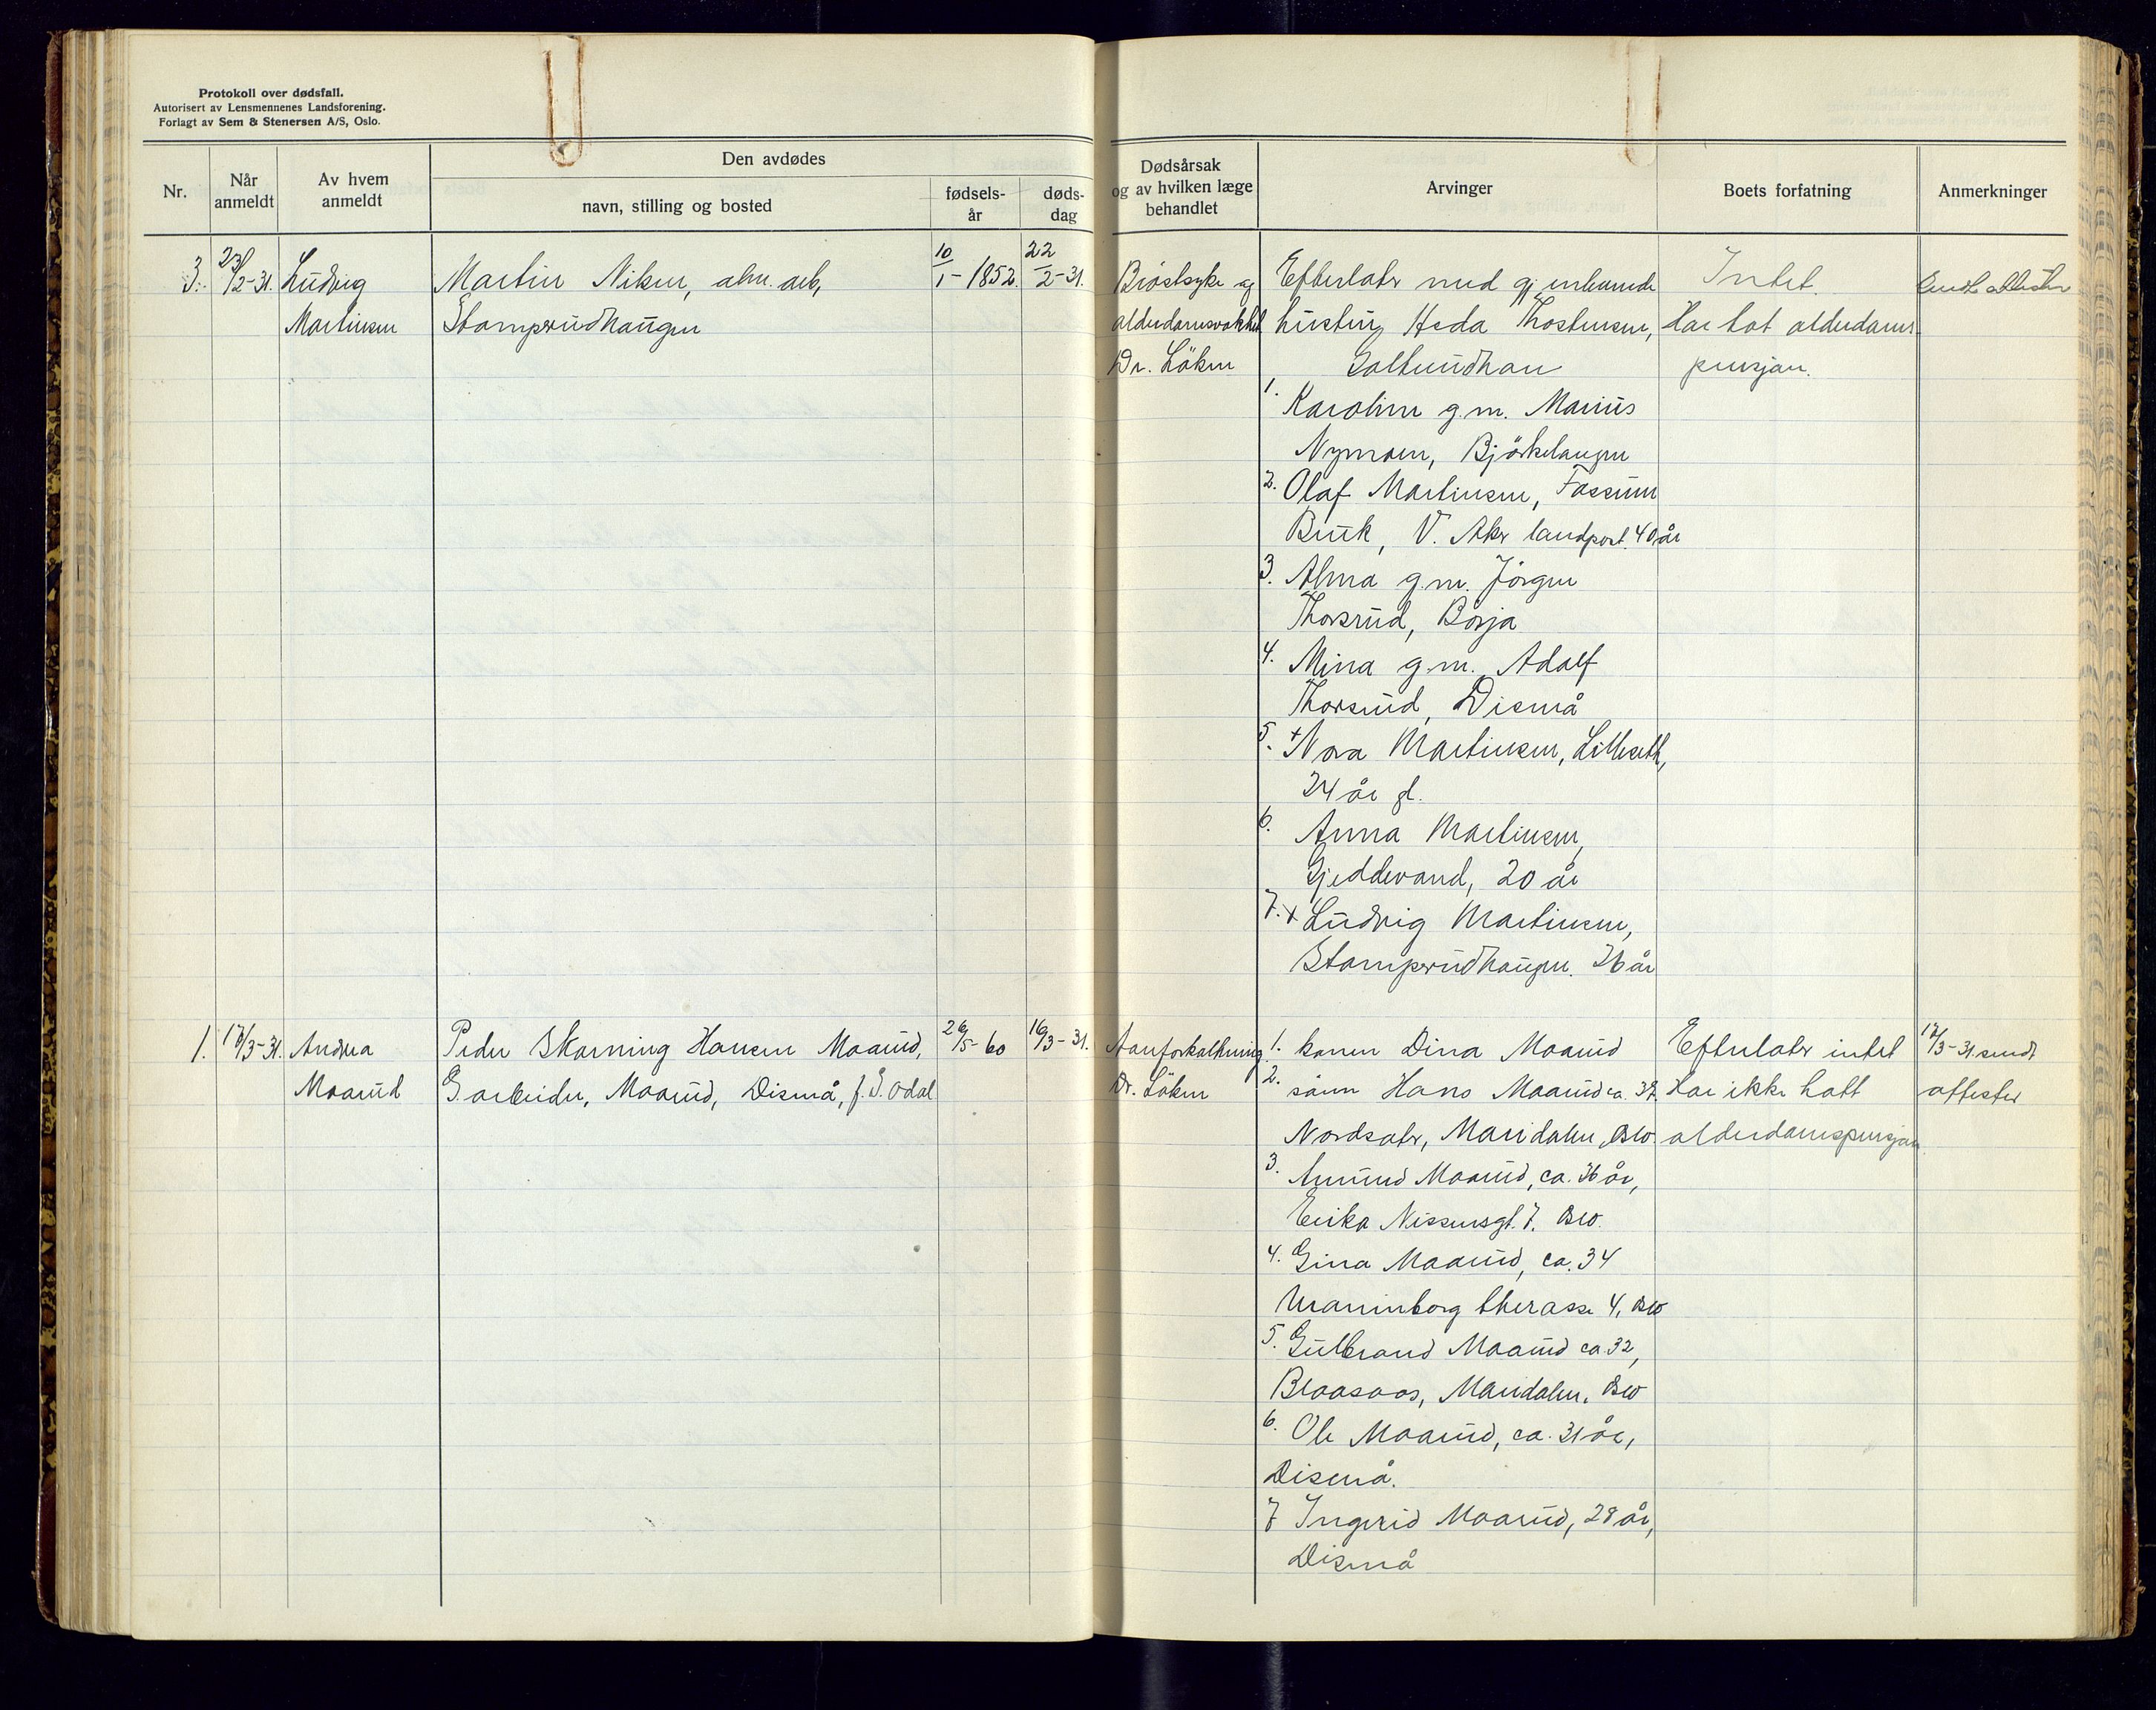 Protokoll over dødsfall.
Autorisert av Lensmennenes Landsforening.
Forlagt av Sem & Stenersen A/S, Oslo.
Nr.
Når anmeldt
Av hvem anmeldt
Den avdødes
navn, stilling og bosted
fødsels-år
døds-dag
Dødsårsak og av hvilken læge behandlet
Arvinger
Boets forfatning
Anmerkninger
3. 23/2-31. Ludvig Martin Niksen, alm. arb, 10/1-1852. 22/2-31.
Martinsen Stamperudhaugen
Bröstsyke og
alderdomsvakhet
Dr. Löken
Efterlater med gjenlevende
husting Heda Thostensen,
Galtundhau
1. Karoline g.m. Marius
Nymoen, Bjørkelangen
2. Olaf Martinsen, Fossum
Bruk, V. Aker landpost. 40 år
3. Alma g.m. Jörgen
Thorsrud, Börja
4. Mina g.m. Adolf
Thorsrud, Disenå
5. + Nora Martinsen, Lilleseth,
24 år gl.
6. Anna Martinsen,
Gjeddevand, 20 år
7. + Ludvig Martinsen,
Stamperudhaugen. 26 år
Intet.
Har hat alderdoms
pensjon.
Sendt attester
1. 17/3-31. Andrea Peder Skarning Hansen Maarud, 26/5-60 16/3-31.
Maarud G. arbeider, Maarud, Disenå, f. S. Odal
Aareforkalkning.
Dr. Löken
1. konen Dina Maarud
2. sönn Hans Maarud ca. 38.
Nordsater, Maridalen, Oslo.
3. Amund Maarud, ca. 36 år,
Erika Nissensgt. 7. Oslo.
4. Gina Maarud, ca. 34
Uranienborg therasse 4, Oslo
5. Gulbrand Maarud ca. 32,
Blaasaas, Maridalen. Oslo
6. Ole Maarud, ca. 31 år,
Disenå.
7 Ingerid Maarud, 28 år,
Disenå
Efterlater intet
Har ikke hatt
alderdomspensjon
17/3-31. sendt
attester